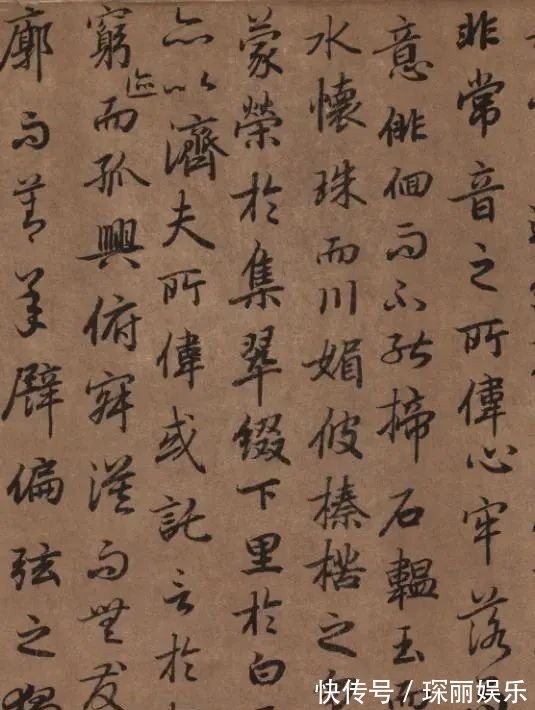 非常音之所偉心牢落
意俳佪而不能揥石韞玉而
水懷珠而川媚彼榛楛之
蒙榮於集翠綴下里於白
亦以濟夫所偉或託言於
窮迹而孤興俯寂漠而無友
廓而莫承譬偏弦之獨
快传号/琛丽娱乐